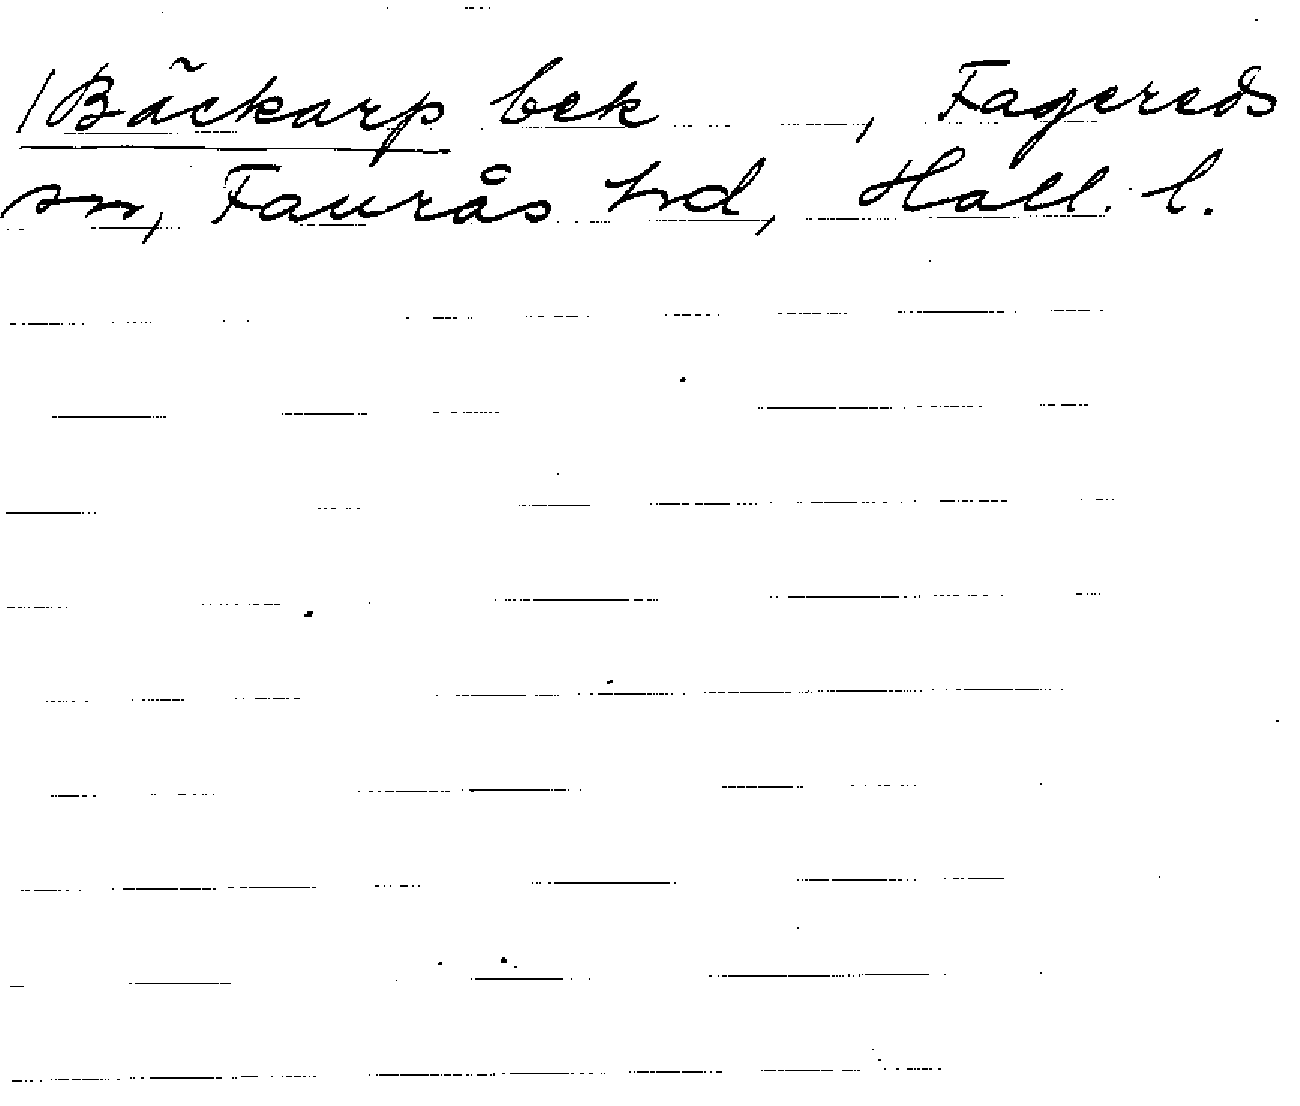 /Bäckarp bek , Fagereds
sn, Faurås hd, Hall. l.